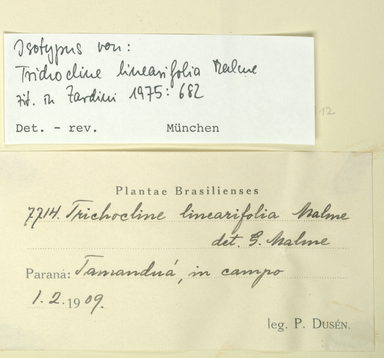 Isotypus von:
Trichocline linearifolia Malme
zit. in Zardini 1975: 682
Det. - rev. München
12
Plantae Brasilienses
7714. Trichocline linearifolia Malme
det. G. Malme
Paraná: Tamanduá, in campo
1. 2. 1909.
leg. P. DUSÉN.